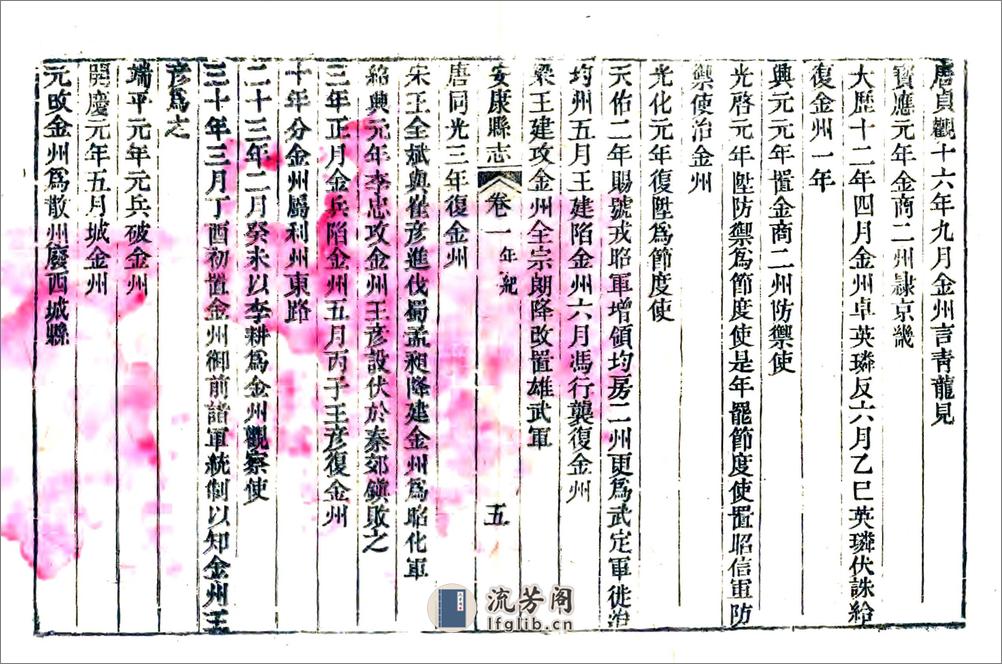 唐貞觀十六年九月金州言青龍見
寶應元年金商二州隸京畿
大歷十二年四月金州卓英璘反六月乙巳英璘伏誅給
復金州一年
興元元年置金商二州防禦使
光啓元年陞防禦為節度使是年罷節度使置昭信軍防
禦使治金州
光化元年復陞為節度使
天佑二年賜號戎昭軍增領均房二州更為武定軍徙治
均州五月王建陷金州六月馮行襲復金州
梁王建攻金州全宗朗降改置雄武軍
安康縣志
卷一
年紀
五
唐同光三年復金州
宋王全斌與崔彥進伐蜀孟昶降建金州為昭化軍
紹興元年李忠攻金州王彥設伏於秦郊鎮敗之
三年正月金兵陷金州五月丙子王彥復金州
十年分金州屬利州東路
二十三年二月癸未以李耕為金州觀察使
三十年三月丁酉初置金州御前諸軍統制以知金州王
彥為之
端平元年元兵破金州
開慶元年五月城金州
元改金州為散州廢西城縣
流芳閣
lfglib.cn